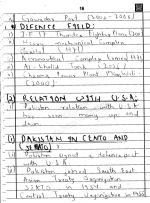 18
Gawadar Port (2002-2008)
DEFENCE FIELD:
J.F 17 Thunder Fighter Plane (2007)
Heavy mechanical Complex
(1971)
Aeronautical Complex Kamra (1973)
Al Khalid Tank
(2000)
RELATION WITH U.S.A:
Pakistan relation with U.S.A
has seen many up and
down
PAKISTAN IN CENTO AND
SEATO:
Pakistan signed a defence pact
with U.S.A
Pakistan joined South East
Asian Treaty Organization
SEATO in 1954 and
Central Treaty Organization